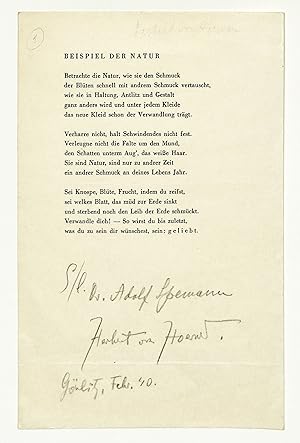 1
Herbert von Hoerner
BEISPIEL DER NATUR
Betrachte die Natur, wie sie den Schmuck
der Blüten schnell mit andrem Schmuck vertauscht,
wie sie in Haltung, Antlitz und Gestalt
ganz anders wird und unter jedem Kleide
das neue Kleid schon der Verwandlung trägt.
Verharre nicht, halt Schwindendes nicht fest.
Verleugne nicht die Falte um den Mund,
den Schatten unterm Aug', das weiße Haar.
Sie sind Natur, sind nur zu andrer Zeit
ein andrer Schmuck an deines Lebens Jahr.
Sei Knospe, Blüte, Frucht, indem du reifst,
sei welkes Blatt, das müd zur Erde sinkt
und sterbend noch den Leib der Erde schmückt.
Verwandle dich! — So wirst du bis zuletzt,
was du zu sein dir wünschest, sein: geliebt.
S/l. Dr. Adolf Spemann
Herbert von Hoerner.
Görlitz, Febr. 40.